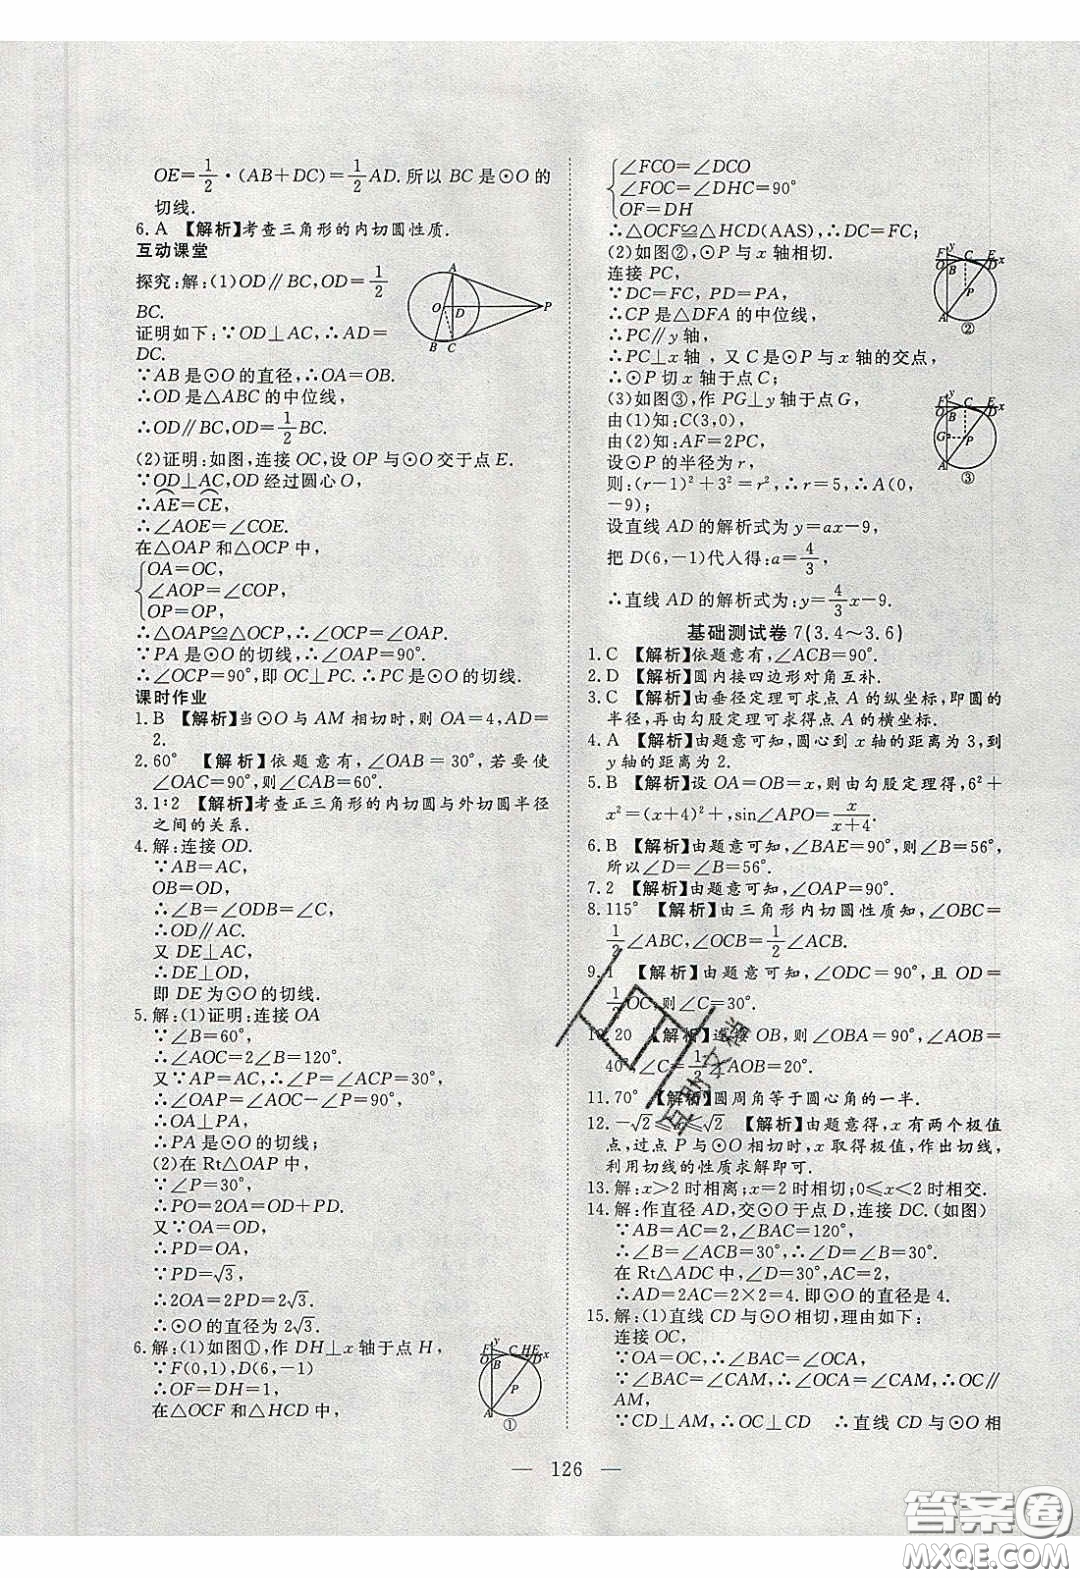 OE=1/2·(AB+DC)=1/2AD.所以 BC 是⊙O 的
切线.
6.A 【解析】考查三角形的内切圆性质.
互动课堂
探究:解:(1)OD∥BC,OD=1/2
BC.
证明如下:∵OD⊥AC,∴AD=
DC.
∵AB是⊙O的直径,∴OA=OB.
∴OD是△ABC的中位线,
∴OD∥BC,OD=1/2BC.
(2)证明:如图,连接OC,设 OP与⊙O交于点E.
∵OD⊥AC,OD经过圆心O,
∴⌒AE=⌒CE,
∴∠AOE=∠COE.
在△OAP和△OCP中,
{OA=OC,
∠AOP=∠COP,
OP=OP,
∴△OAP≌△OCP,∴∠OCP=∠OAP.
∵PA是⊙O的切线,∴∠OAP=90°.
∴∠OCP=90°,即 OC⊥PC.∴PC是⊙O的切线.
课时作业
1.B 【解析】当⊙O 与 AM 相切时,则 OA=4,AD=
2.
2.60° 【解析】依题意有,∠OAB=30°,若要使
∠OAC=90°,则∠CAB=60°.
3.1∶2 【解析】考查正三角形的内切圆与外切圆半径
之间的关系.
4.解:连接 OD.
∵AB=AC,
OB=OD,
∴∠B=∠ODB=∠C,
∴OD∥AC.
又 DE⊥AC,
∴DE⊥OD,
即 DE为⊙O的切线.
5.解:(1)证明:连接 OA
∵∠B=60°,
∴∠AOC=2∠B=120°.
又∵AP=AC,∴∠AOP=60°.
∴∠OAP=∠AOC−∠P=90°.
∴OA⊥PA,
∴PA是⊙O的切线;
(2)在 Rt△OAP中,
∵∠P=30°,
∴PO=2OA=OD+PD.
又∵OA=OD,
∴PD=OA,
∵PD=√3,
∴2OA=2PD=2√3.
∴⊙O的直径为2√3.
6.解:(1)如图①,作 DH⊥x轴于点 H,
∵F(0,1),D(6,−1)
∴OF=DH=1,
在△OCF和△HCD中,
{∠FCO=∠DCO
∠FOC=∠DHC=90°
OF=DH
∴△OCF≌△HCD(AAS),∴DC=FC;
(2)如图②,⊙P与x轴相切.
连接 PC,
∵DC=FC,PD=PA,
∴CP是△DFA的中位线,
∴PC∥y轴,
∴PC⊥x轴,又 C是⊙P与x轴的交点,
∴⊙P切x轴于点C;
(3)如图③,作PG⊥y轴于点G,
由(1)知:C(3,0),
由(2)知:AF=2PC,
设⊙P的半径为r,
则:(r−1)²+3²=r²,∴r=5,∴A(0,
−9);
设直线 AD 的解析式为y=ax−9,
把 D(6,−1)代人得:a=4/3,
∴直线 AD 的解析式为:y=4/3x−9.
基础测试卷 7(3.4~3.6)
1.C 【解析】依题意有,∠ACB=90°.
2.D 【解析】圆内接四边形对角互补.
3.C 【解析】由垂径定理可求点 A 的纵坐标,即圆的
半径,再由勾股定理可求得点 A 的横坐标.
4.A 【解析】由题意可知,圆心到 x 轴的距离为 3,到
y轴的距离为2.
5.B 【解析】设 OA=OB=x,则由勾股定理得,6²+
x²=(x+4)²+,sin∠APO=x/(x+4).
6.B 【解析】由题意可知,∠BAE=90°,则∠B=56°,
所以∠D=∠B=56°.
7.2 【解析】由题意可知,∠OAP=90°.
8.115° 【解析】由三角形内切圆性质知,∠OBC=
1/2∠ABC,∠OCB=1/2∠ACB.
9.1 【解析】由题意可知,∠ODC=90°,且 OD=
1/2OC,则∠C=30°.
10.20 【解析】连接 OB,则∠OBA=90°,∠AOB=
40°,∠C=1/2∠AOB=20°.
11.70° 【解析】圆周角等于圆心角的一半.
12.−√2≤x≤√2 【解析】由题意得,x 有两个极值
点,过点 P 与⊙O 相切时,x 取得极值,作出切线,
利用切线的性质求解即可.
13.解:x>2时相离;x=2时相切;0≤x<2时相交.
14.解:作直径 AD,交⊙O于点D,连接 DC.(如图)
∵AB=AC=2,∠BAC=120°,
∴∠B=∠BCA=30°,∴∠D=∠B=30°.
在 Rt△ADC中,∠D=30°,AC=2,
∴AD=2AC=2×2=4.即⊙O的直径是 4.
15.解:(1)直线 CD与⊙O相切,理由如下:
连接OC,
∵OA=OC,∴∠BAC=∠OCA,
∵∠BAC=∠CAM,∴∠OCA=∠CAM,∴OC∥
AM,
∵CD⊥AM,∴OC⊥CD ∴直线 CD 与⊙O 相
— 126 —
答案圈
MXQE.COM